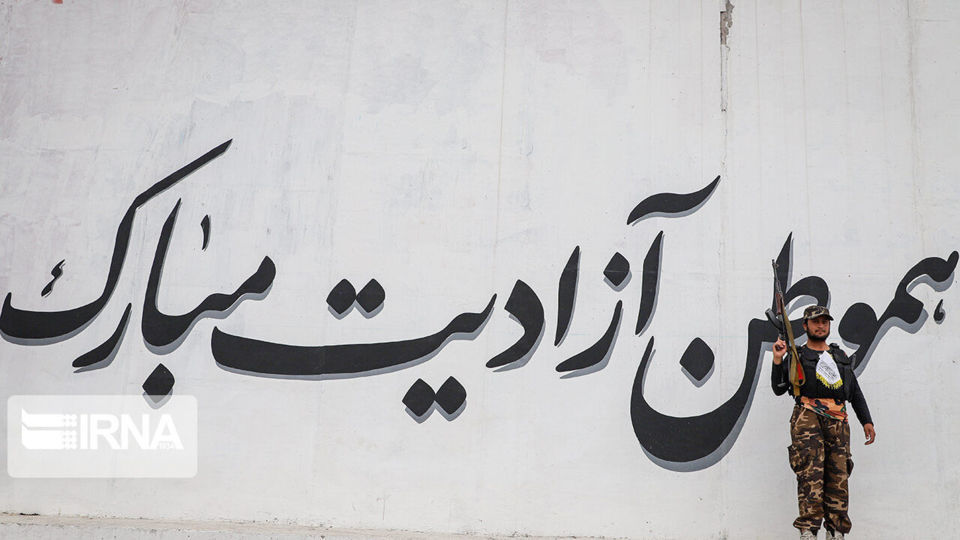 هموطن آزادیت مبارک
IRNA